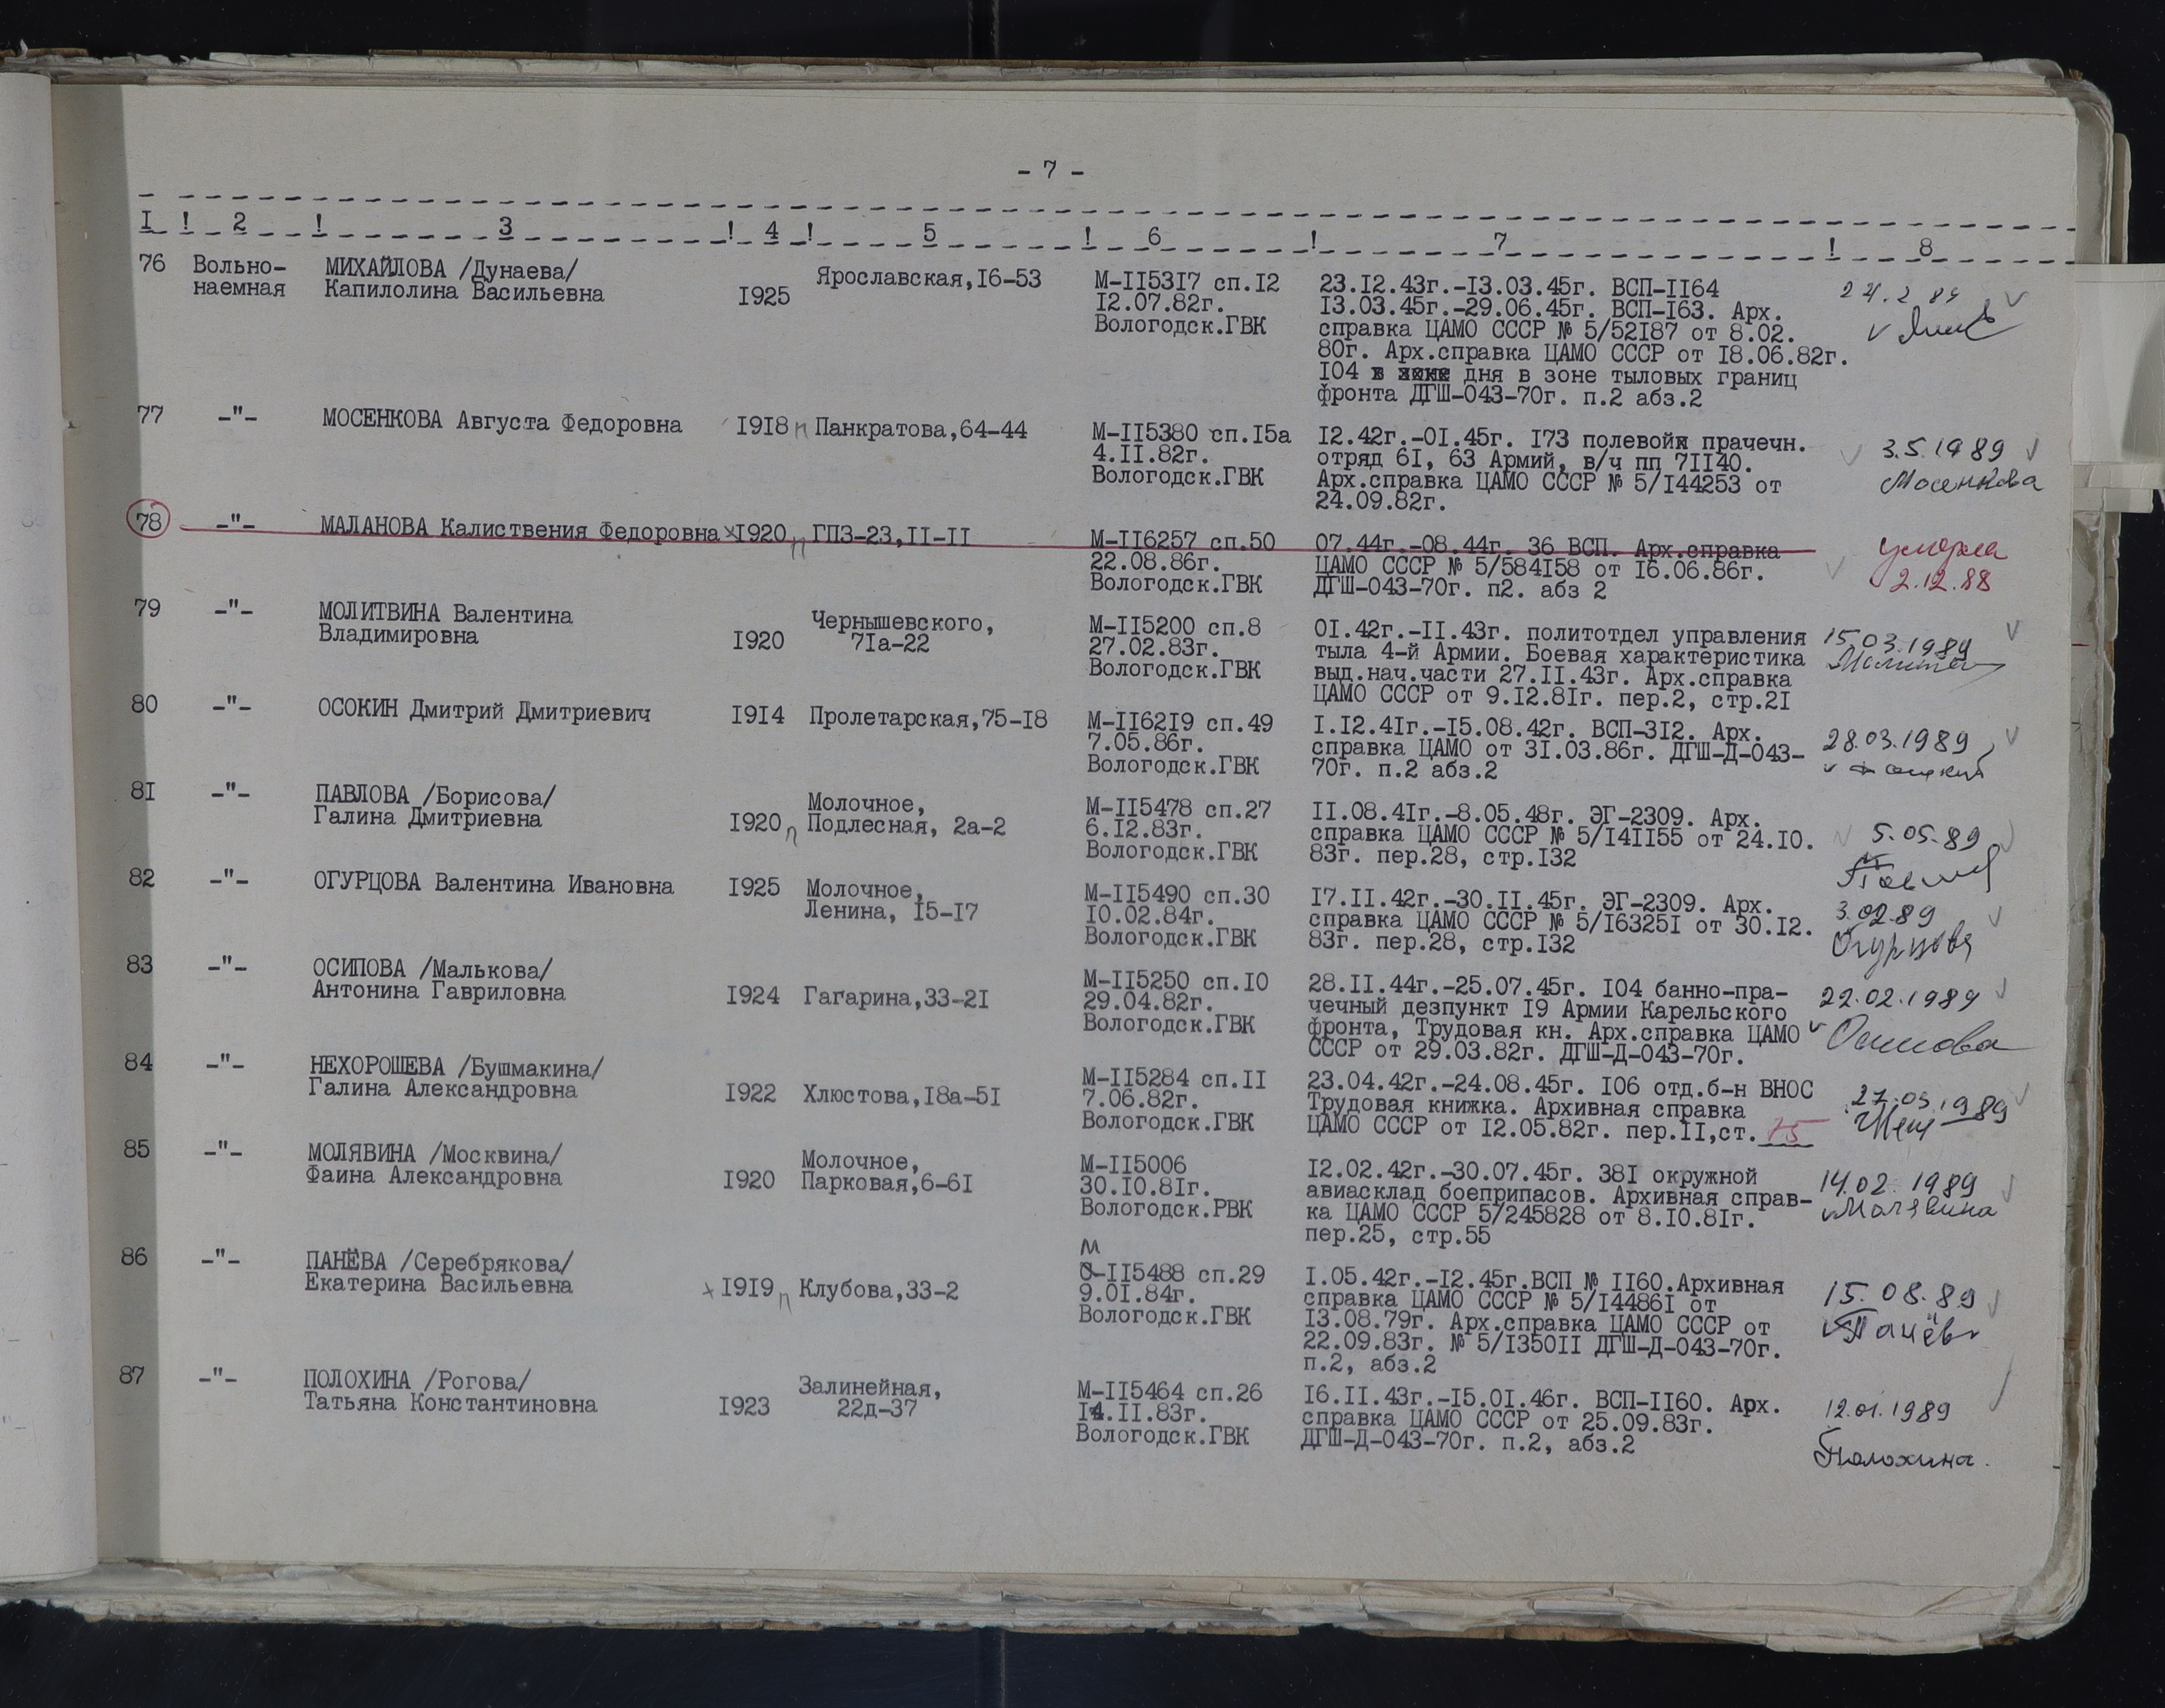 - 7 -
I ! 2 ! 3 ! 4 ! 5 ! 6 ! 7 ! 8
76 Вольно-наемная МИХАЙЛОВА /Дунаева/ Капилолина Васильевна I925 Ярославская,I6-53
М-II53I7 сп.I2
I2.07.82г.
Вологодск.ГВК
23.I2.43г.-I3.03.45г. ВСП-II64
I3.03.45г.-29.06.45г. ВСП-I63. Арх.
справка ЦАМО СССР № 5/52I87 от 8.02.
80г. Арх.справка ЦАМО СССР от I8.06.82г.
I04 в зоне дня в зоне тыловых границ
фронта ДГШ-043-70г. п.2 абз.2
77 -"- МОСЕНКОВА Августа Федоровна I9I8 п Панкратова,64-44
М-II5380 сп.I5а
4.II.82г.
Вологодск.ГВК
I2.42г.-0I.45г. I73 полевой прачечн.
отряд 6I, 63 Армий, в/ч пп 7II40.
Арх.справка ЦАМО СССР № 5/I44253 от
24.09.82г.
3.5.1989
Мосенкова
78 -"- МАЛАНОВА Калиствения Федоровна х I920 п ГПЗ-23,II-II
М-II6257 сп.50
22.08.86г.
Вологодск.ГВК
07.44г.-08.44г. 36 ВСП. Арх.справка
ЦАМО СССР № 5/584I58 от I6.06.86г.
ДГШ-043-70г. п2. абз 2
умерла
2.12.88
79 -"- МОЛИТВИНА Валентина
Владимировна I920
Чернышевского,
7Iа-22
М-II5200 сп.8
27.02.83г.
Вологодск.ГВК
0I.42г.-II.43г. политотдел управления
тыла 4-й Армии. Боевая характеристика
выд.нач.части 27.II.43г. Арх.справка
ЦАМО СССР от 9.I2.8Iг. пер.2, стр.2I
15.03.1989
80 -"- ОСОКИН Дмитрий Дмитриевич I9I4 Пролетарская,75-I8
М-II62I9 сп.49
7.05.86г.
Вологодск.ГВК
I.I2.4Iг.-I5.08.42г. ВСП-3I2. Арх.
справка ЦАМО от 3I.03.86г. ДГШ-Д-043-
70г. п.2 абз.2
28.03.1989
8I -"- ПАВЛОВА /Борисова/
Галина Дмитриевна I920 п
Молочное,
Подлесная, 2а-2
М-II5478 сп.27
6.I2.83г.
Вологодск.ГВК
II.08.4Iг.-8.05.48г. ЭГ-2309. Арх.
справка ЦАМО СССР № 5/I4II55 от 24.I0.
83г. пер.28, стр.I32
5.05.89
82 -"- ОГУРЦОВА Валентина Ивановна I925
Молочное,
Ленина, I5-I7
М-II5490 сп.30
I0.02.84г.
Вологодск.ГВК
I7.II.42г.-30.II.45г. ЭГ-2309. Арх.
справка ЦАМО СССР № 5/I6325I от 30.I2.
83г. пер.28, стр.I32
3.02.89
Огурцова
83 -"- ОСИПОВА /Малькова/
Антонина Гавриловна I924 Гагарина,33-2I
М-II5250 сп.I0
29.04.82г.
Вологодск.ГВК
28.II.44г.-25.07.45г. I04 банно-пра-
чечный дезпункт I9 Армии Карельского
фронта, Трудовая кн. Арх.справка ЦАМО
СССР от 29.03.82г. ДГШ-Д-043-70г.
22.02.1989
Осипова
84 -"- НЕХОРОШЕВА /Бушмакина/
Галина Александровна I922 Хлюстова,I8а-5I
М-II5284 сп.II
7.06.82г.
Вологодск.ГВК
23.04.42г.-24.08.45г. I06 отд.б-н ВНОС
Трудовая книжка. Архивная справка
ЦАМО СССР от I2.05.82г. пер.II,ст. 75
27.03.1989
85 -"- МОЛЯВИНА /Москвина/
Фаина Александровна I920
Молочное,
Парковая,6-6I
М-II5006
30.I0.8Iг.
Вологодск.РВК
I2.02.42г.-30.07.45г. 38I окружной
авиасклад боеприпасов. Архивная справ-
ка ЦАМО СССР 5/245828 от 8.I0.8Iг.
пер.25, стр.55
14.02.1989
Молявина
86 -"- ПАНЁВА /Серебрякова/
Екатерина Васильевна х I9I9 п Клубова,33-2
М
-II5488 сп.29
9.0I.84г.
Вологодск.ГВК
I.05.42г.-I2.45г.ВСП № II60.Архивная
справка ЦАМО СССР № 5/I4486I от
I3.08.79г. Арх.справка ЦАМО СССР от
22.09.83г. № 5/I350II ДГШ-Д-043-70г.
п.2, абз.2
15.08.89
Панёва
87 -"- ПОЛОХИНА /Рогова/
Татьяна Константиновна I923
Залинейная,
22д-37
М-II5464 сп.26
I4.II.83г.
Вологодск.ГВК
I6.II.43г.-I5.0I.46г. ВСП-II60. Арх.
справка ЦАМО СССР от 25.09.83г.
ДГШ-Д-043-70г. п.2, абз.2
12.01.1989
Полохина.